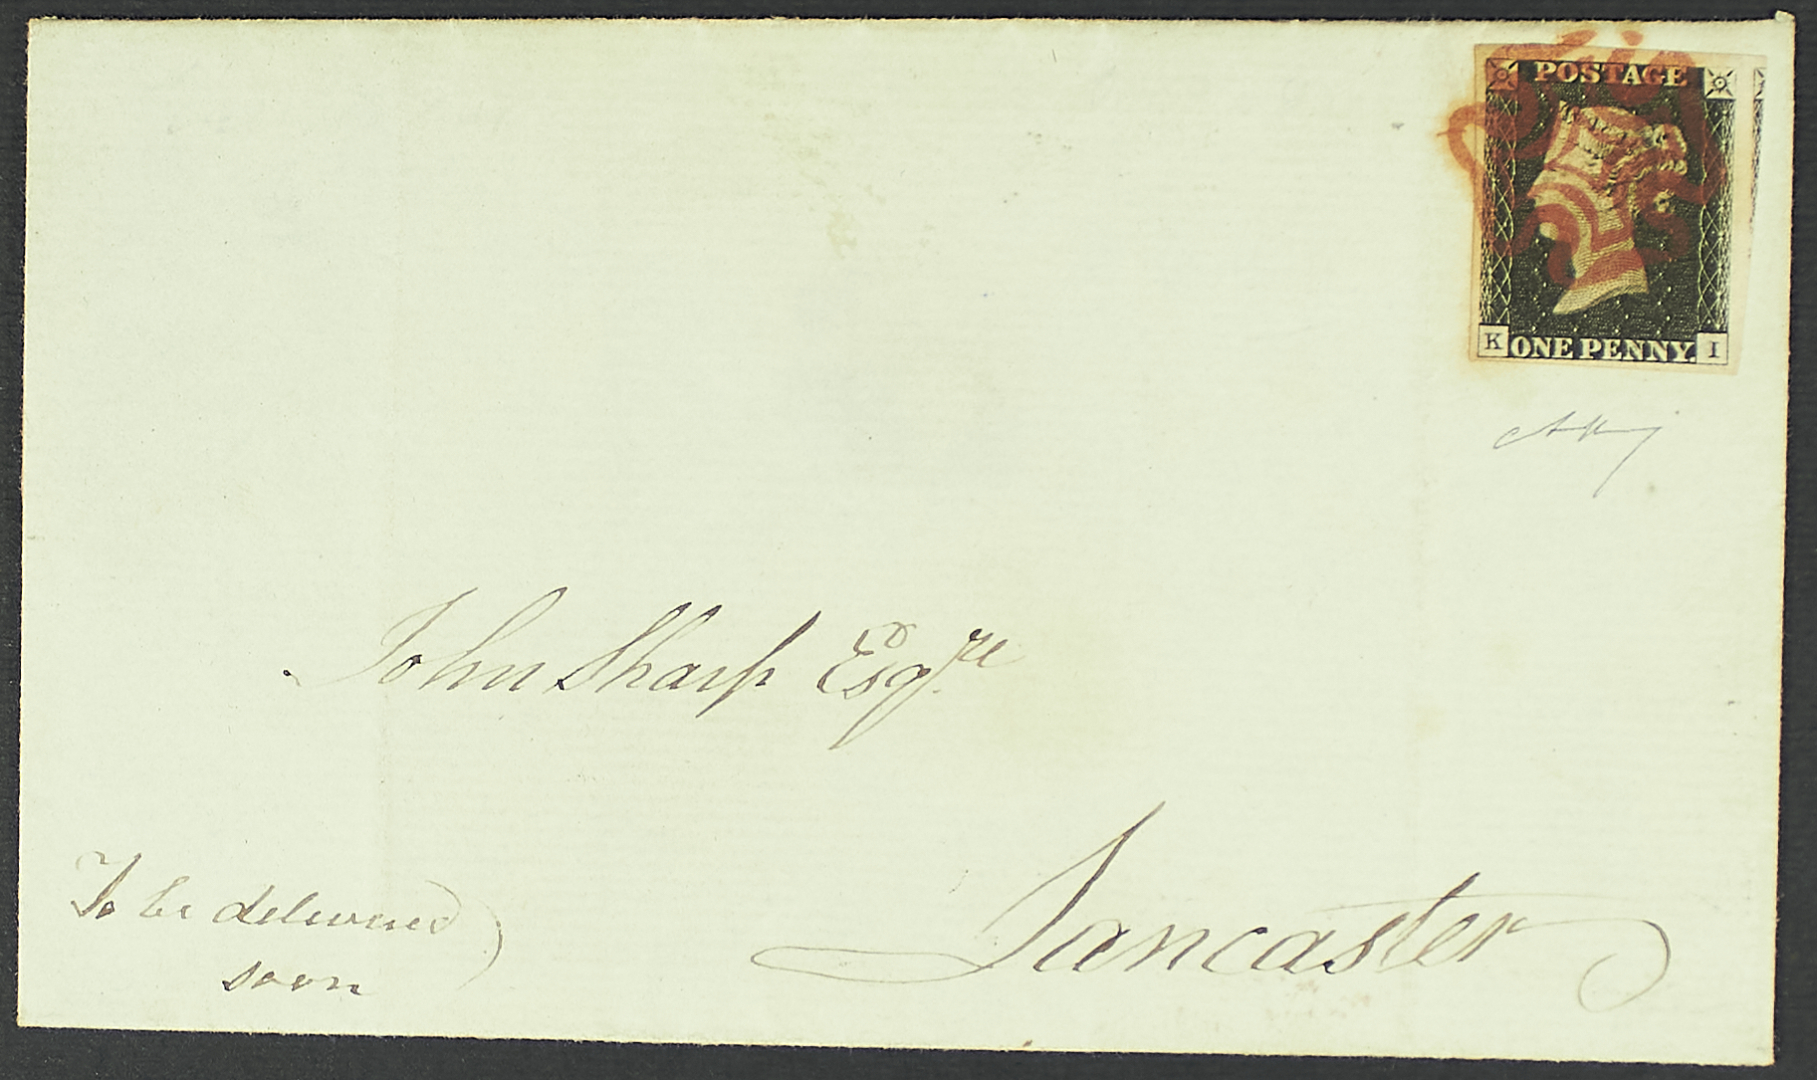 POSTAGE
K ONE PENNY. I
John Sharp Esqre
Lancaster
To be delivered
soon